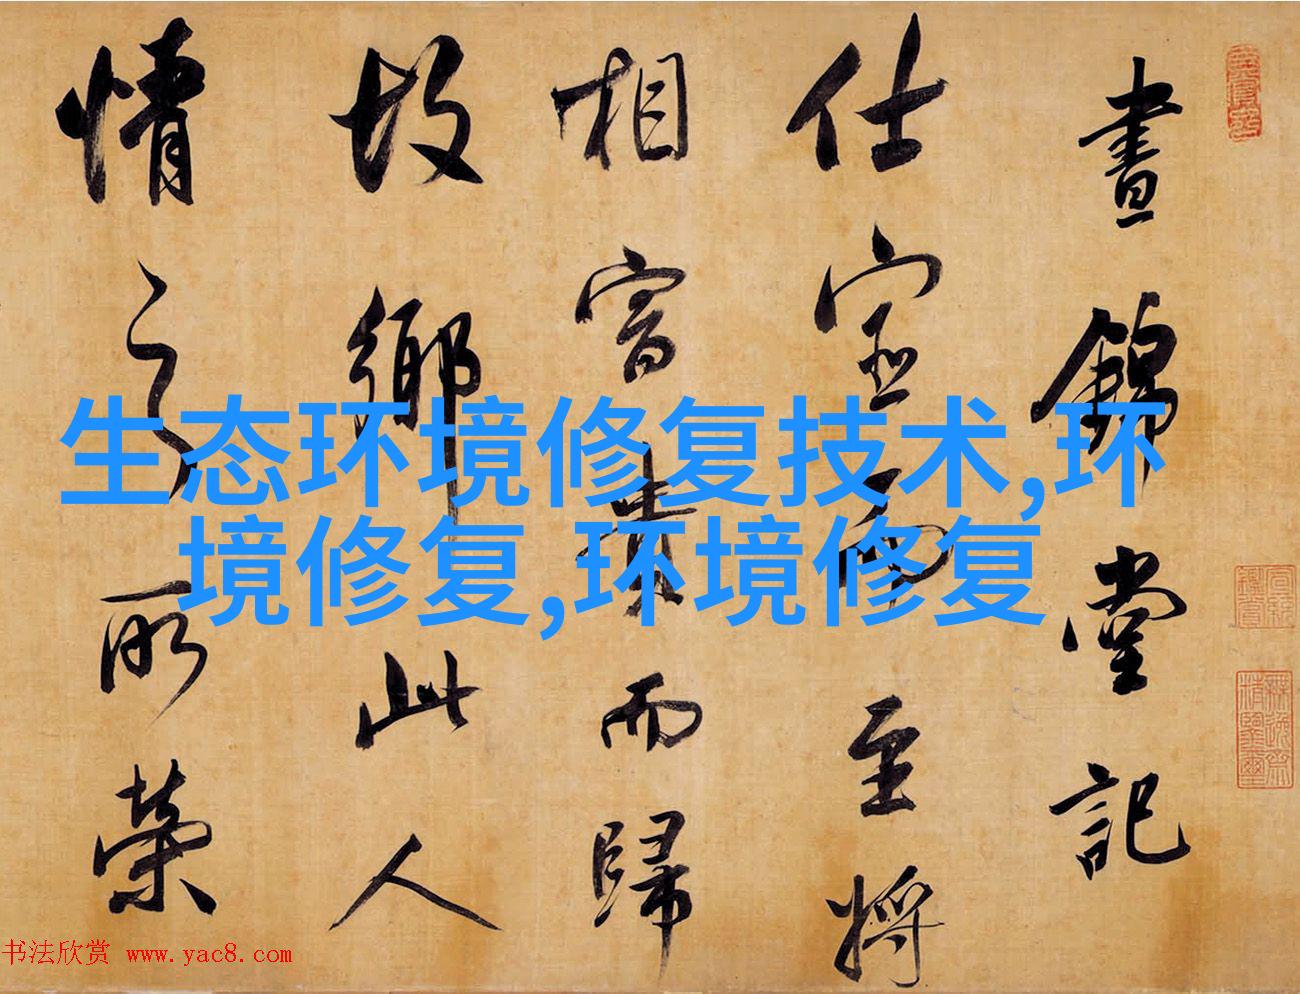 晝錦堂記
仕宦而至將
相富貴而歸
故鄉此人
情之所榮
生态环境修复技术,环
境修复,环境修复
书法欣赏 www.yac8.com